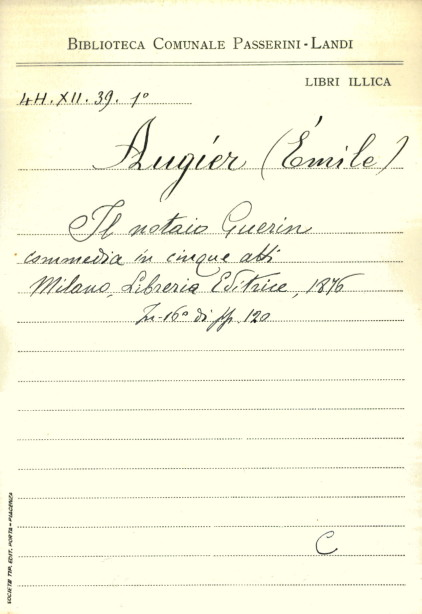 BIBLIOTECA COMUNALE PASSERINI-LANDI
LIBRI ILLICA
4H.XII.39.1º
Augier (Émile)
Il notaio Guerin
commedia in cinque atti
Milano, Libreria Editrice, 1876
In-16º di pp. 120
C
SOCIETÀ TIP. EDIT. PORTA - PIACENZA